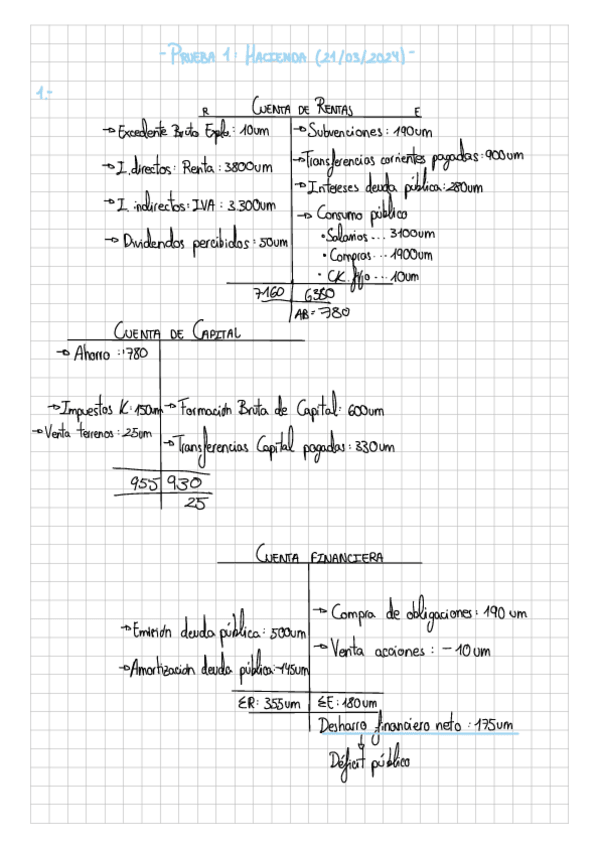 - PRUEBA 1: HACIENDA (21/03/2024) -
1.-
R CUENTA DE RENTAS E
→ Excedente Bruto Expl.: 10um
→ Subvenciones: 190um
→ I. directos: Renta: 3800um
→ Transferencias corrientes pagadas: 900um
→ Intereses deuda pública: 280um
→ I. indirectos: IVA: 3.300um
→ Consumo público
• Salarios... 3100um
→ Dividendos percibidos: 50um
• Compras... 1900um
• CK. fijo... 10um
7160 6380
AB = 780
CUENTA DE CAPITAL
→ Ahorro: 780
→ Impuestos K: 150um → Formación Bruta de Capital: 600um
→ Venta terrenos: 25um
→ Transferencias Capital pagadas: 330um
955 930
25
CUENTA FINANCIERA
→ Compra de obligaciones: 190 um
→ Emisión deuda pública: 500um
→ Venta acciones: -10um
→ Amortización deuda pública: -145um
ΣR: 355um ΣE: 180um
Desharro financiero neto: 175um
↓
Déficit público